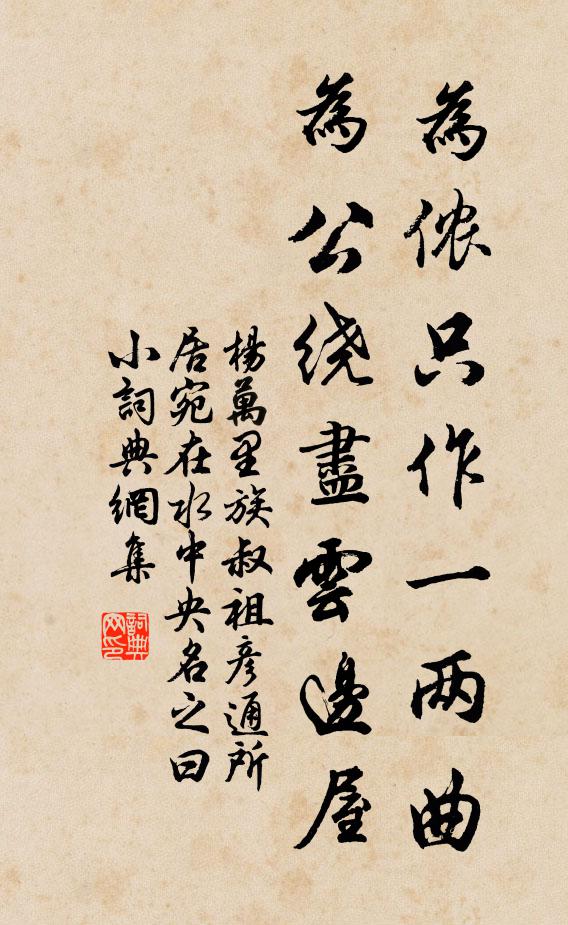 為侬只作一两曲
為公绕盡雲邊屋
楊萬里族叔祖彦通所
居宛在水中央名之曰
小詞典網集
詞典
网印